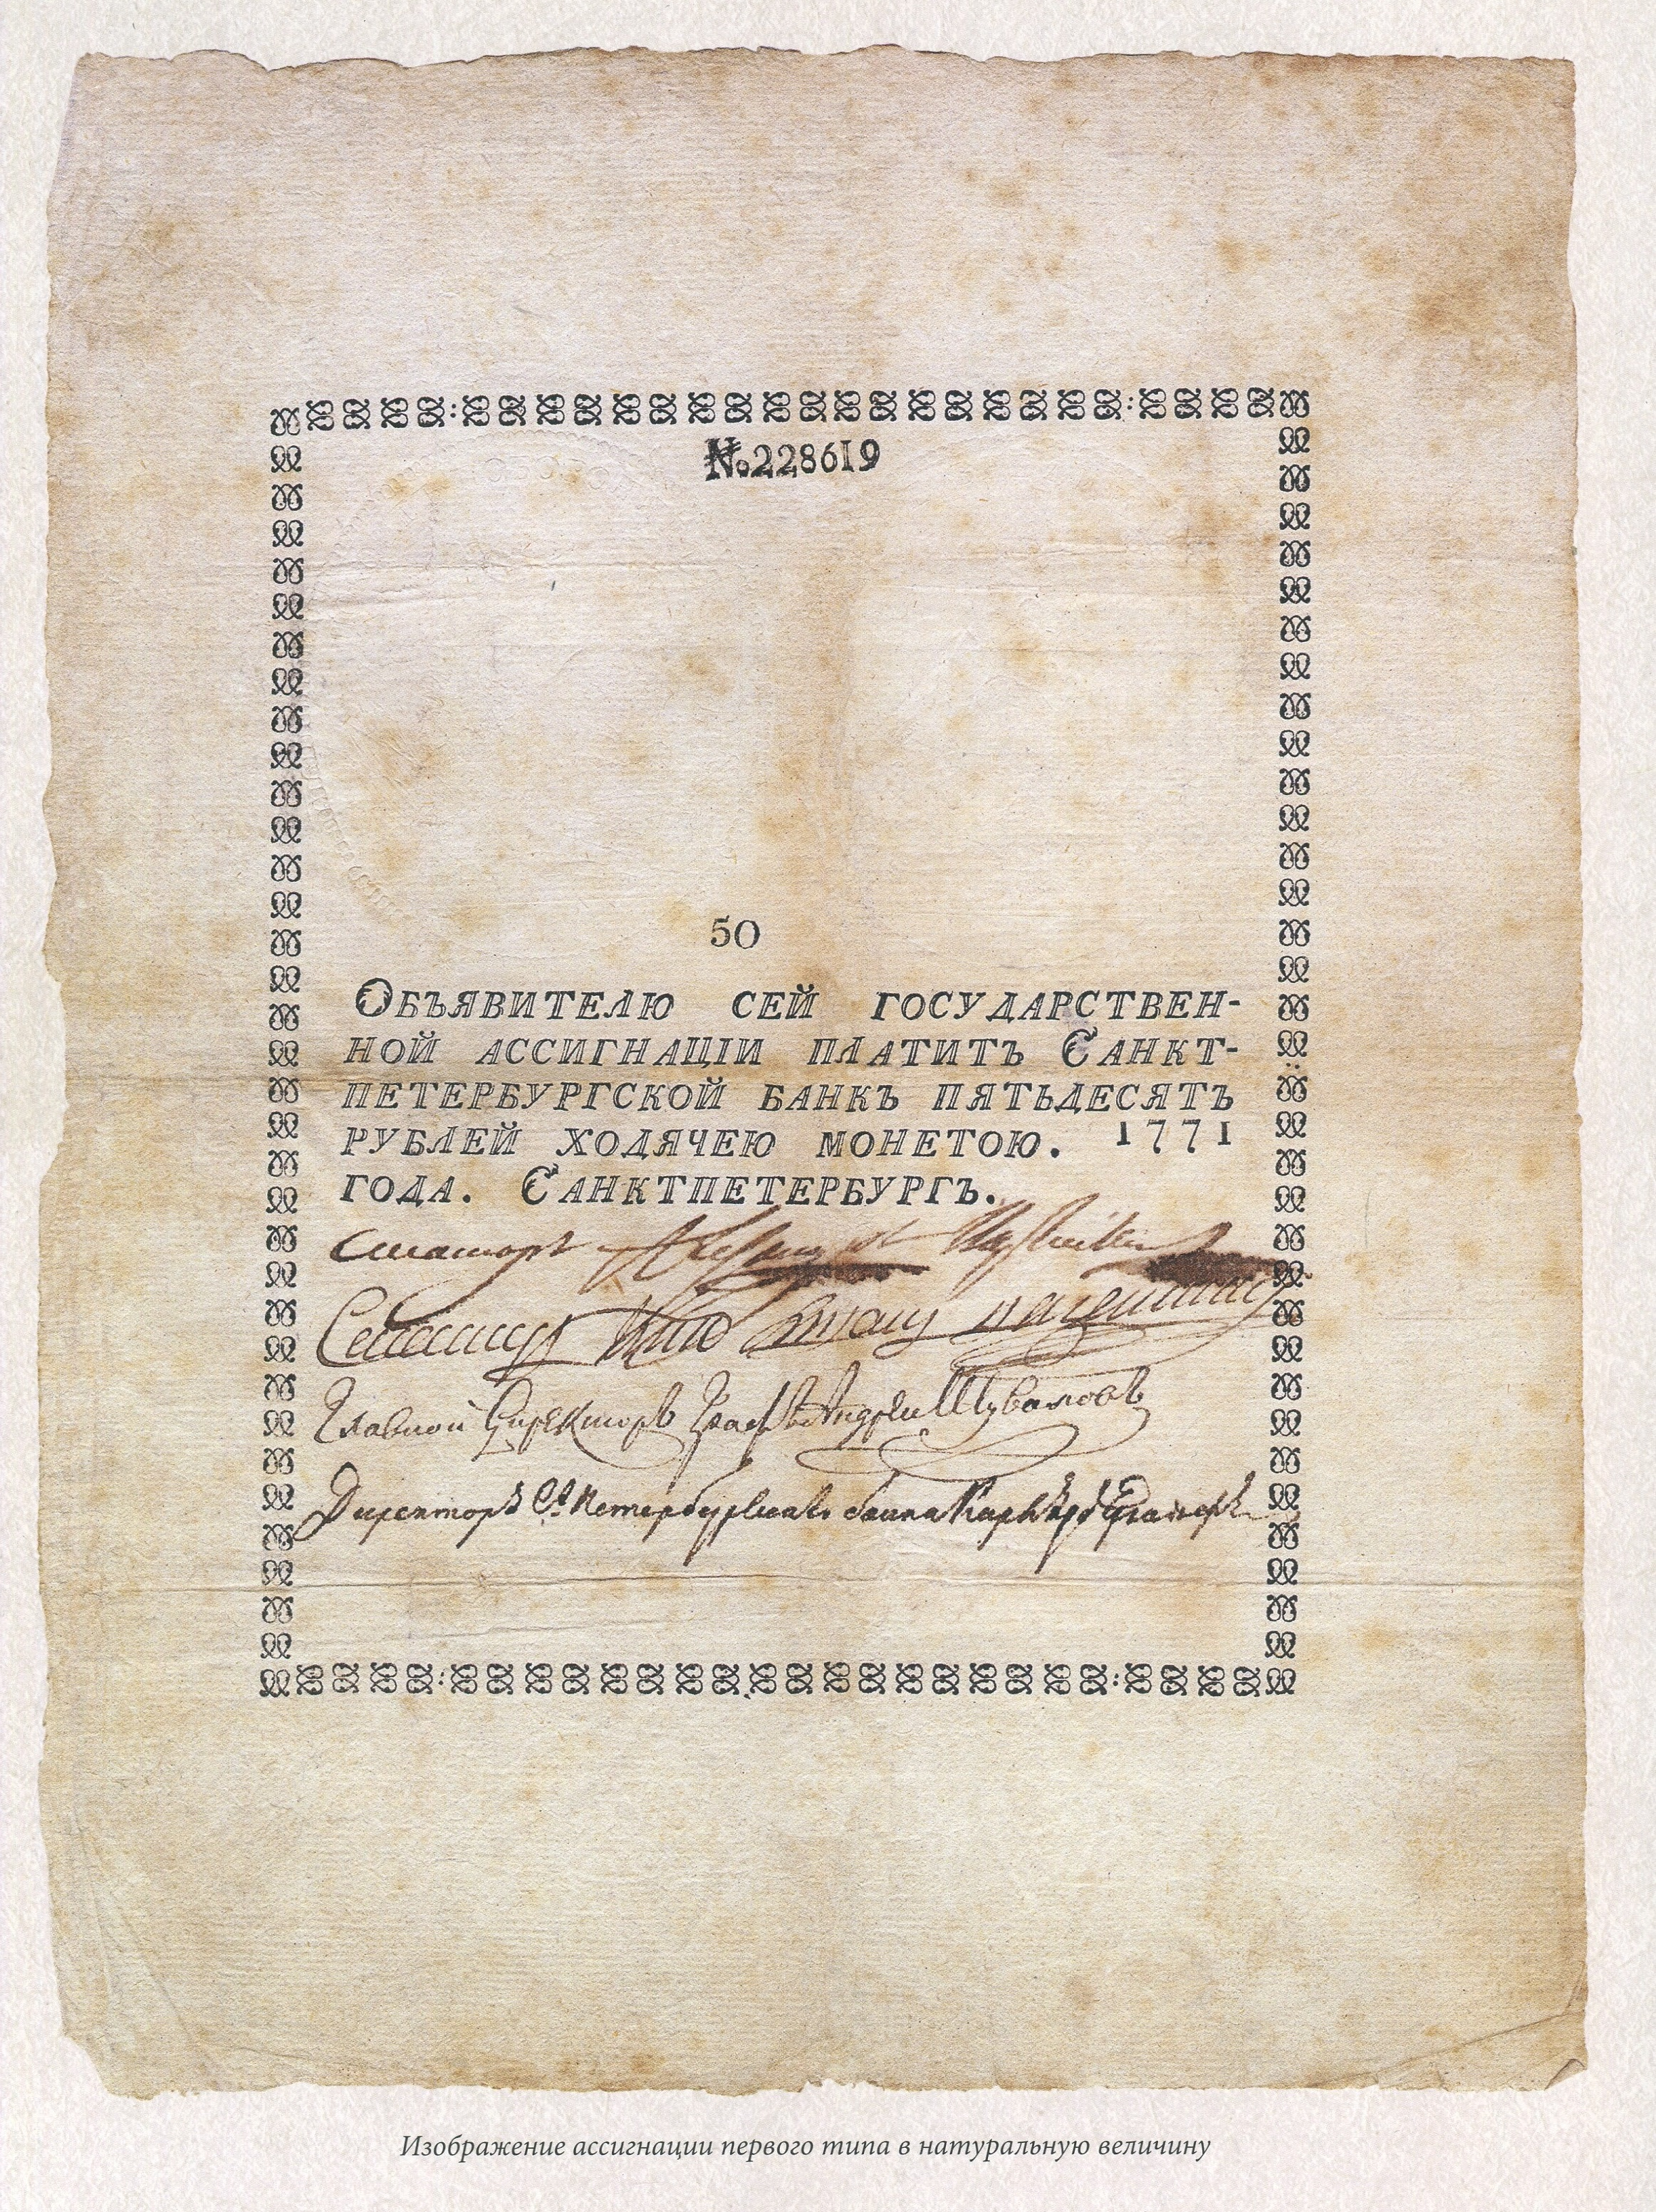 №228619
50
ОБЪЯВИТЕЛЮ СЕЙ ГОСУДАРСТВЕН-
НОЙ АССИГНАЦІИ ПЛАТИТЪ САНКТ-
ПЕТЕРБУРГСКОЙ БАНКЪ ПЯТЬДЕСЯТЪ
РУБЛЕЙ ХОДЯЧЕЮ МОНЕТОЮ. 1771
ГОДА. САНКТПЕТЕРБУРГЪ.
Сенаторъ
Главной Директоръ Графъ Андрей Шуваловъ
Директоръ Ст Петербургскаго банка
Изображение ассигнации первого типа в натуральную величину